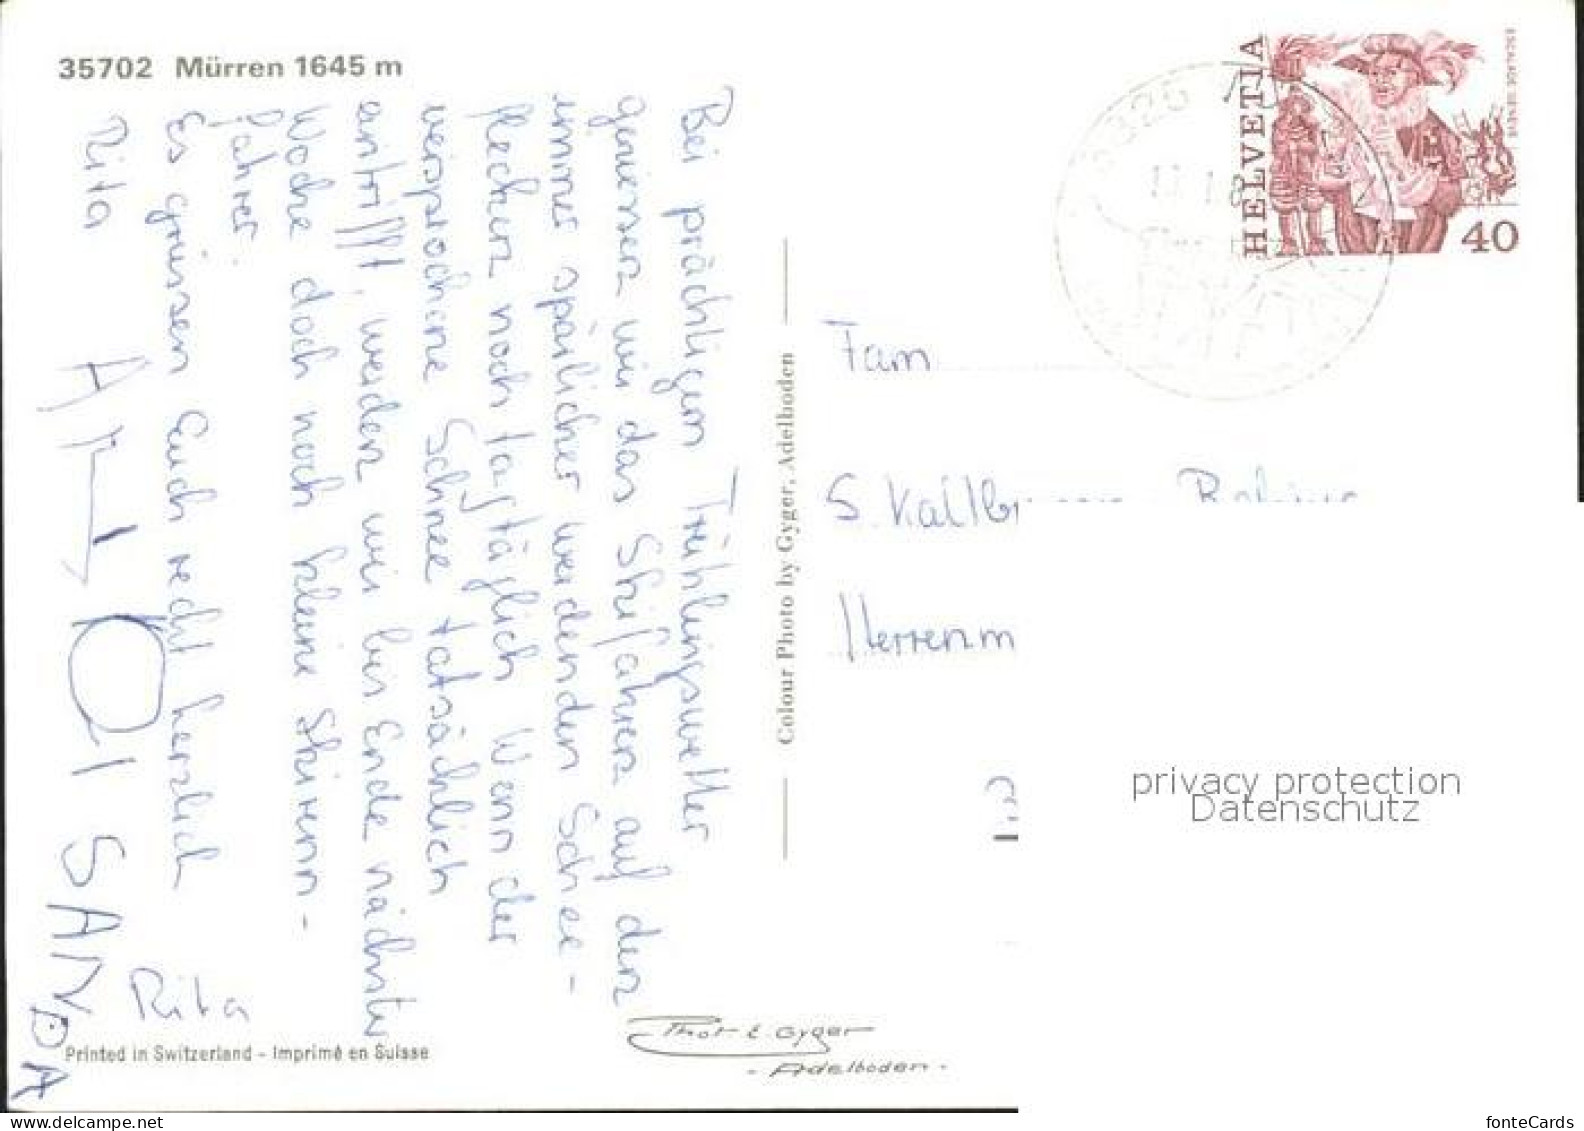 35702 Mürren 1645 m
Bei prächtigem Frühlingswetter
geniessen wir das Skifahren auf den
immer spärlicher werdenden Schnee-
flecken noch tagtäglich. Wenn der
versprochene Schnee tatsächlich
eintrifft, werden wir bis Ende nächster
Woche doch noch kleine Skirenn-
fahrer.
Es grüssen Euch recht herzlich
Rita
SANDA
Rita
Printed in Switzerland - Imprimé en Suisse
Colour Photo by Gyger, Adelboden
Phot E. Gyger
- Adelboden -
HELVETIA
ESCALADE GENÈVE
40
Fam
S.
Herrenm
privacy protection
Datenschutz
fonteCards